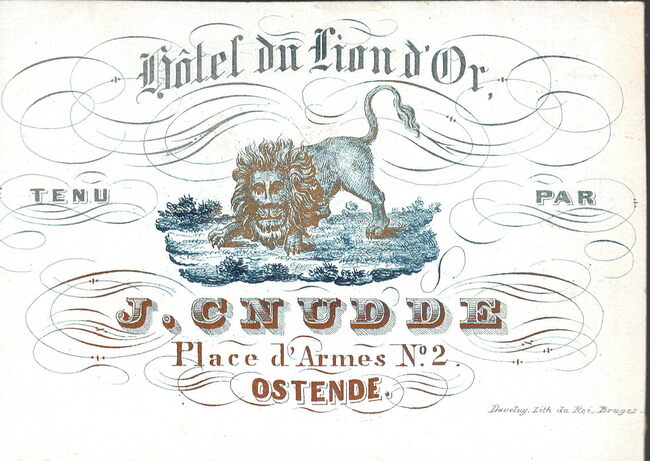 Hôtel du Lion d'Or,
TENU PAR
J. CNUDDE
Place d'Armes No. 2.
OSTENDE.
Daveluy, Lith du Roi, Bruges.